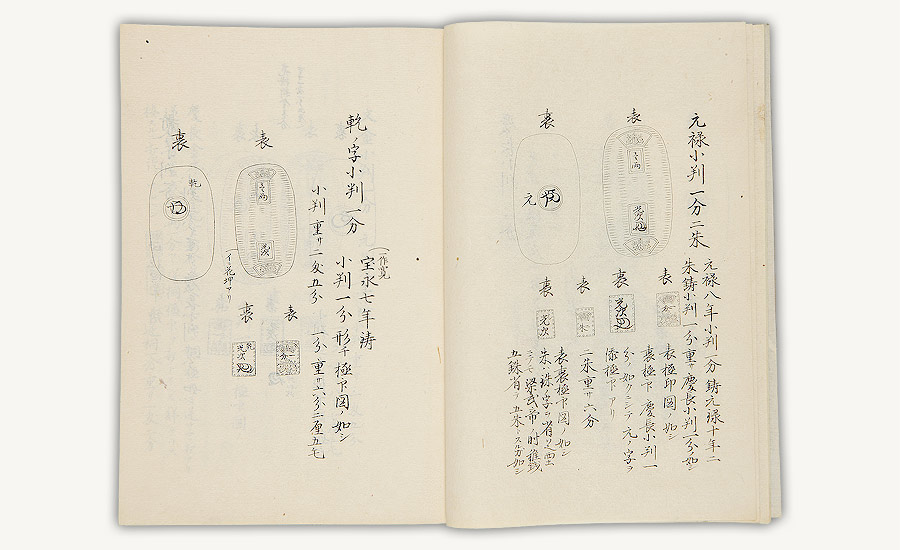 元禄小判一分二朱
表
裏
元
元禄八年小判一分鋳元禄十年二
朱鋳小判一分重サ慶長小判一分ノ如シ
表
表極印図ノ如シ
裏
裏極印慶長小判一
分ノ如クニシテ元ノ字ヲ
添極印アリ
表
二朱重サ六分
裏
表裏極印図ノ如シ
朱ハ銖ノ字ノ省文
梁武帝ノ時稚銭
五銖省テ五朱トスルカ如シ
乾ノ字小判一分
宝永七年濤
小判一分形チ極印図ノ如シ
小判重サ二匁五分 一分重サ六分二厘五毛
表
イ花押アリ
裏
乾
表
裏
光次